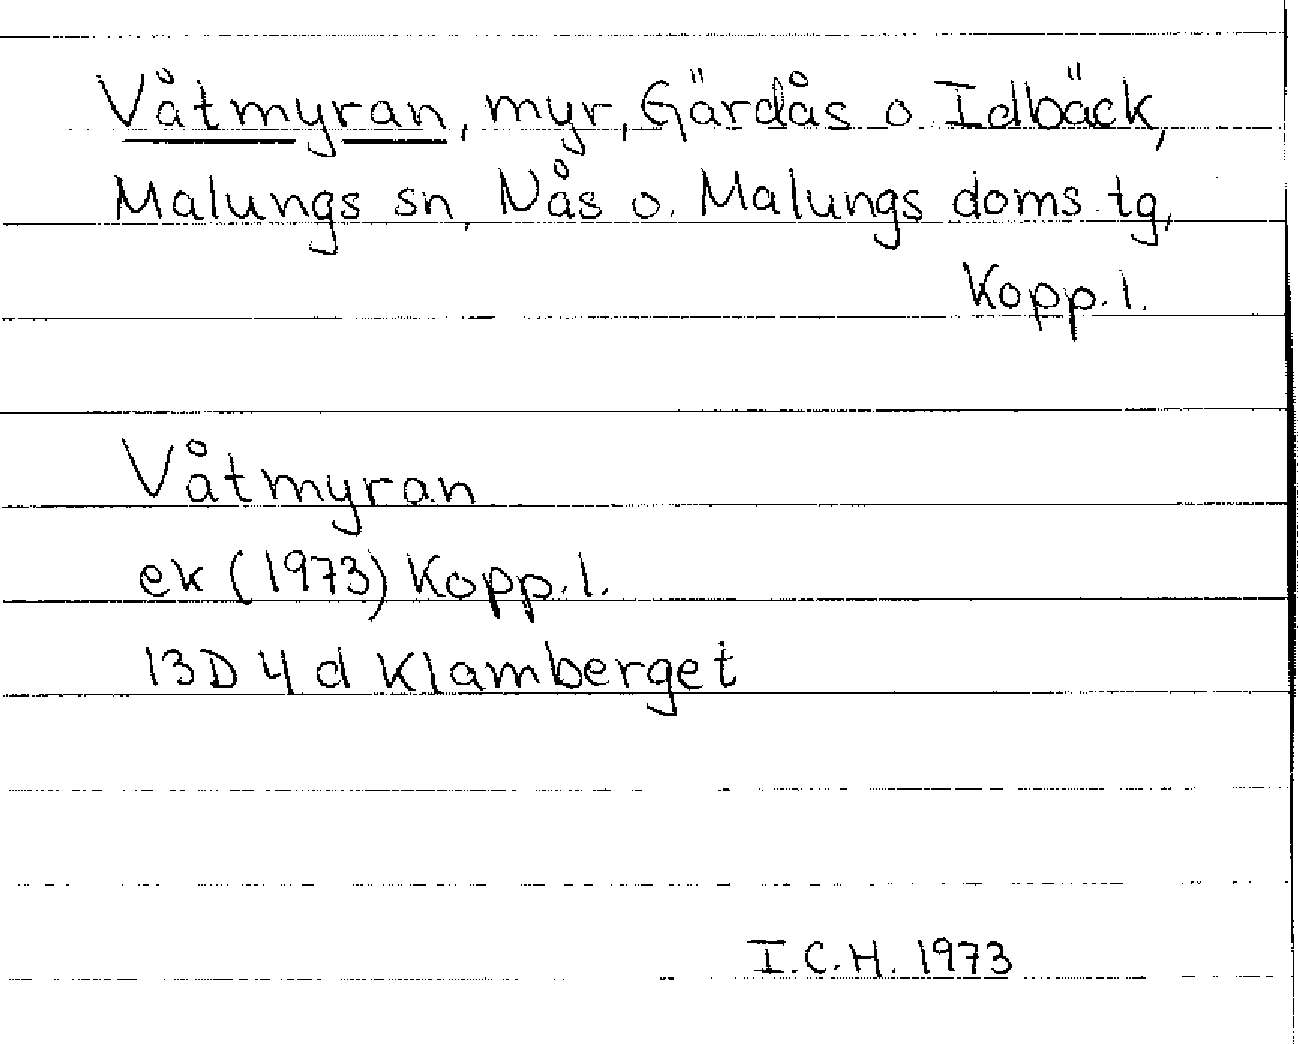 Våtmyran, myr, Gärdås o Idbäck,
Malungs sn, Nås o. Malungs doms.tg,
Kopp.l.
Våtmyran
ek (1973) Kopp.l.
13D 4 d Klamberget
I.C.H. 1973